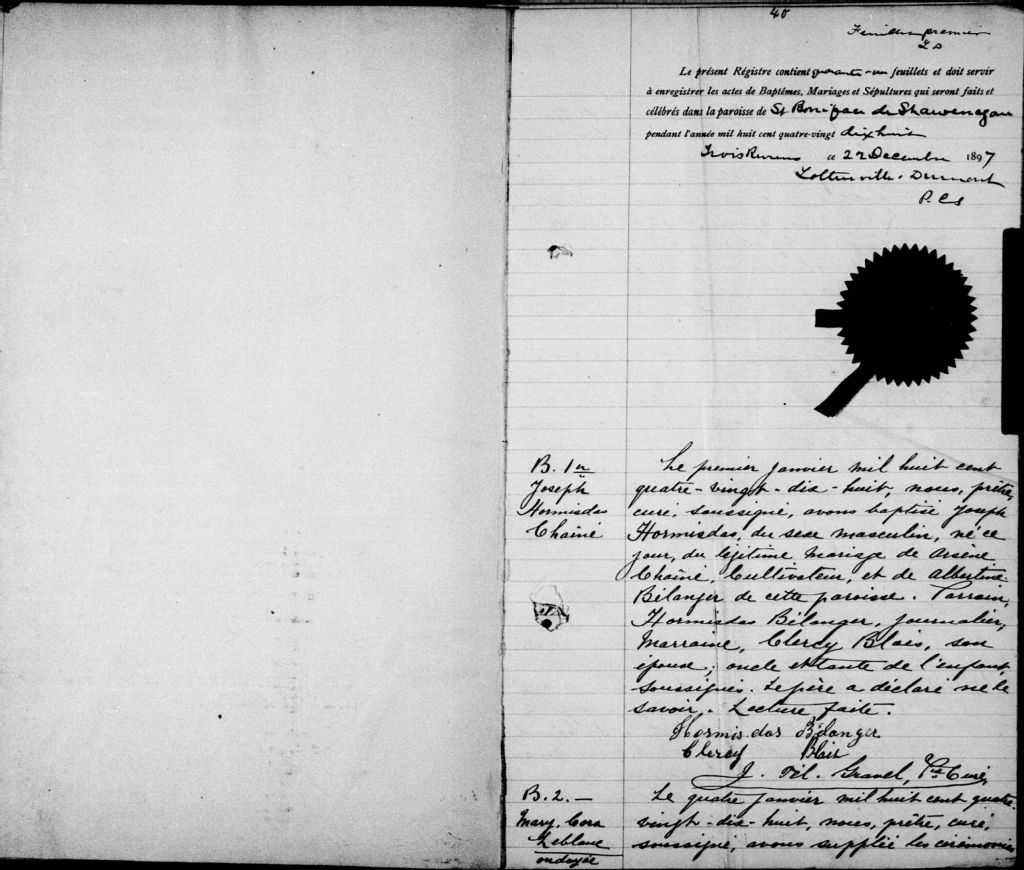 40
Feuillet premier
L D
Le présent Régistre contient quarante-un feuillets et doit servir
à enregistrer les actes de Baptêmes, Mariages et Sépultures qui seront faits et
célébrés dans la paroisse de St Boniface de Shawenegan
pendant l'année mil huit cent quatre-vingt dix huit
Trois Rivieres ce 22 Decembre 1897
Lottinville - Durmont
P. C S
B. 1er
Joseph
Hormisdas
Chaîné
Le premier janvier mil huit cent
quatre-vingt-dix-huit, nous, prêtre,
curé, soussigné, avons baptisé Joseph
Hormisdas, du sexe masculin, né ce
jour, du légitime mariage de Arsène
Chaîné, Cultivateur, et de Albertine
Bélanger de cette paroisse. Parrain,
Hormisdas Bélanger, journalier,
Marraine, Clercy Blais, son
épouse; oncle et tante de l'enfant,
soussignés. Le père a déclaré ne le
savoir. Lecture faite.
Hormisdas Bélanger
Clercy Blais
J. Tél. Gravel, Ptre Curé,
B. 2. —
Mary. Cora
Leblanc
ondoyée
Le quatre janvier mil huit cent quatre-
vingt-dix-huit, nous, prêtre, curé,
soussigné, avons suppléé les cérémonies